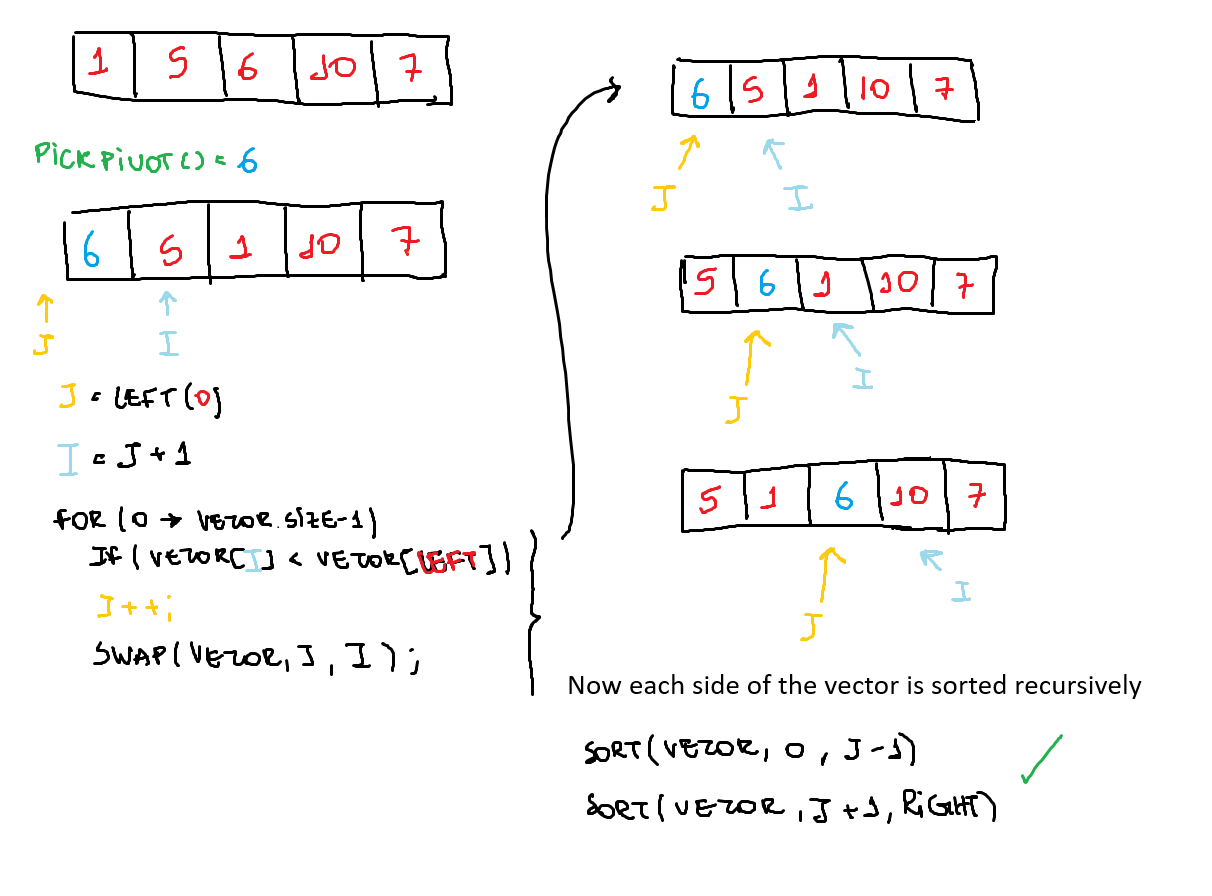 1 5 6 10 7
PICKPIVOT() = 6
6 5 1 10 7
J I
J = LEFT(0)
I = J + 1
FOR (0 → VETOR.SIZE-1)
IF (VETOR[I] < VETOR[LEFT])
J++;
SWAP(VETOR, J, I);
6 5 1 10 7
J I
5 6 1 10 7
J I
5 1 6 10 7
J I
Now each side of the vector is sorted recursively
SORT(VETOR, 0, J-1)
SORT(VETOR, J+1, RIGHT)